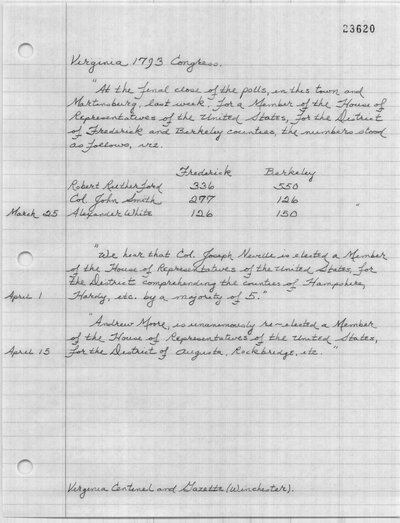 23620
Virginia 1793 Congress.
"At the final close of the polls, in this town and
Martinsburg, last week for a Member of the House of
Representatives of the United States, for the District
of Frederick and Berkeley counties, the numbers stood
as follows, viz.
Frederick Berkeley
Robert Rutherford 336 550
Col. John Smith 277 126
March 25 Alexander White 126 150 "
"We hear that Col. Joseph Neville is elected a Member
of the House of Representatives of the United States, for
the District comprehending the counties of Hampshire,
April 1 Hardy, etc. by a majority of 5."
"Andrew Moore, is unanimously re-elected a Member
of the House of Representatives of the United States,
April 15 for the District of Augusta, Rockbridge, etc."
Virginia Centinel and Gazette (Winchester).